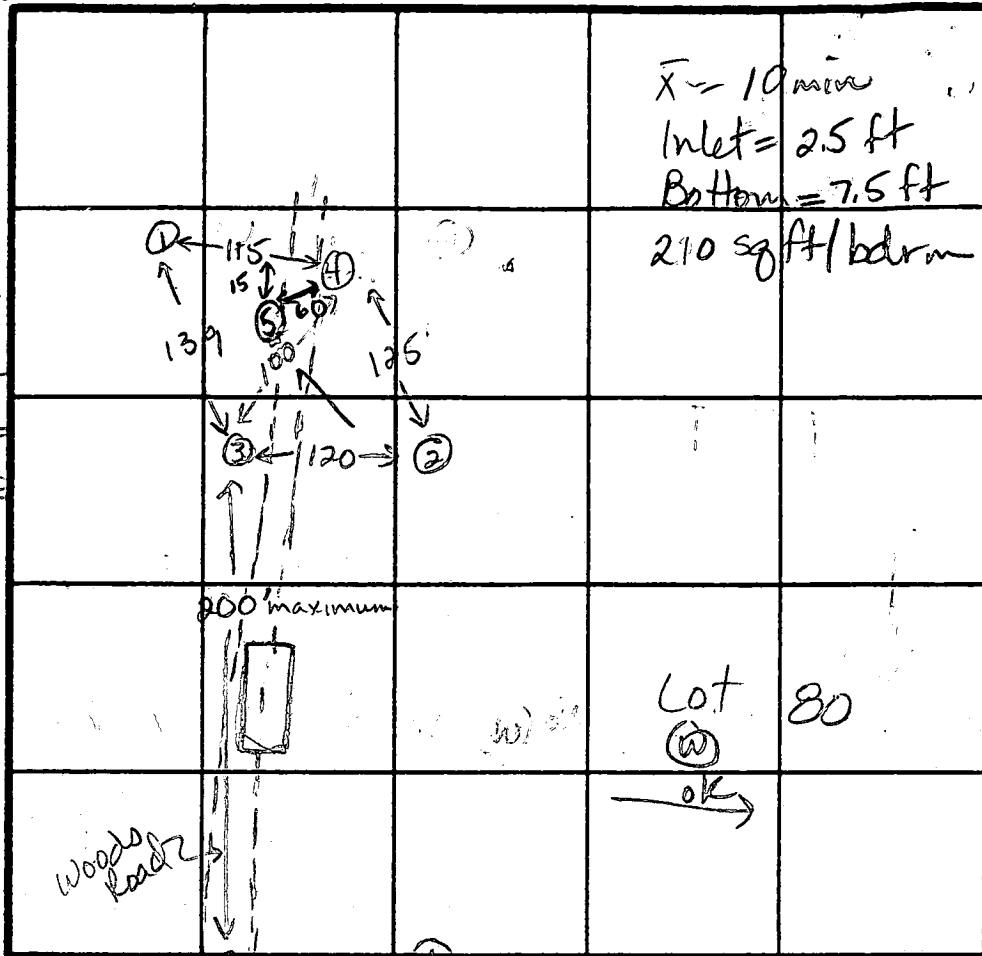 x̄ = 10 min
Inlet = 2.5 ft
Bottom = 7.5 ft
210 sq ft/bdrm
1
115
4
15
5
60
139
100
125'
3
120
2
200' maximum
Lot 80
W
OK
Woods
Road